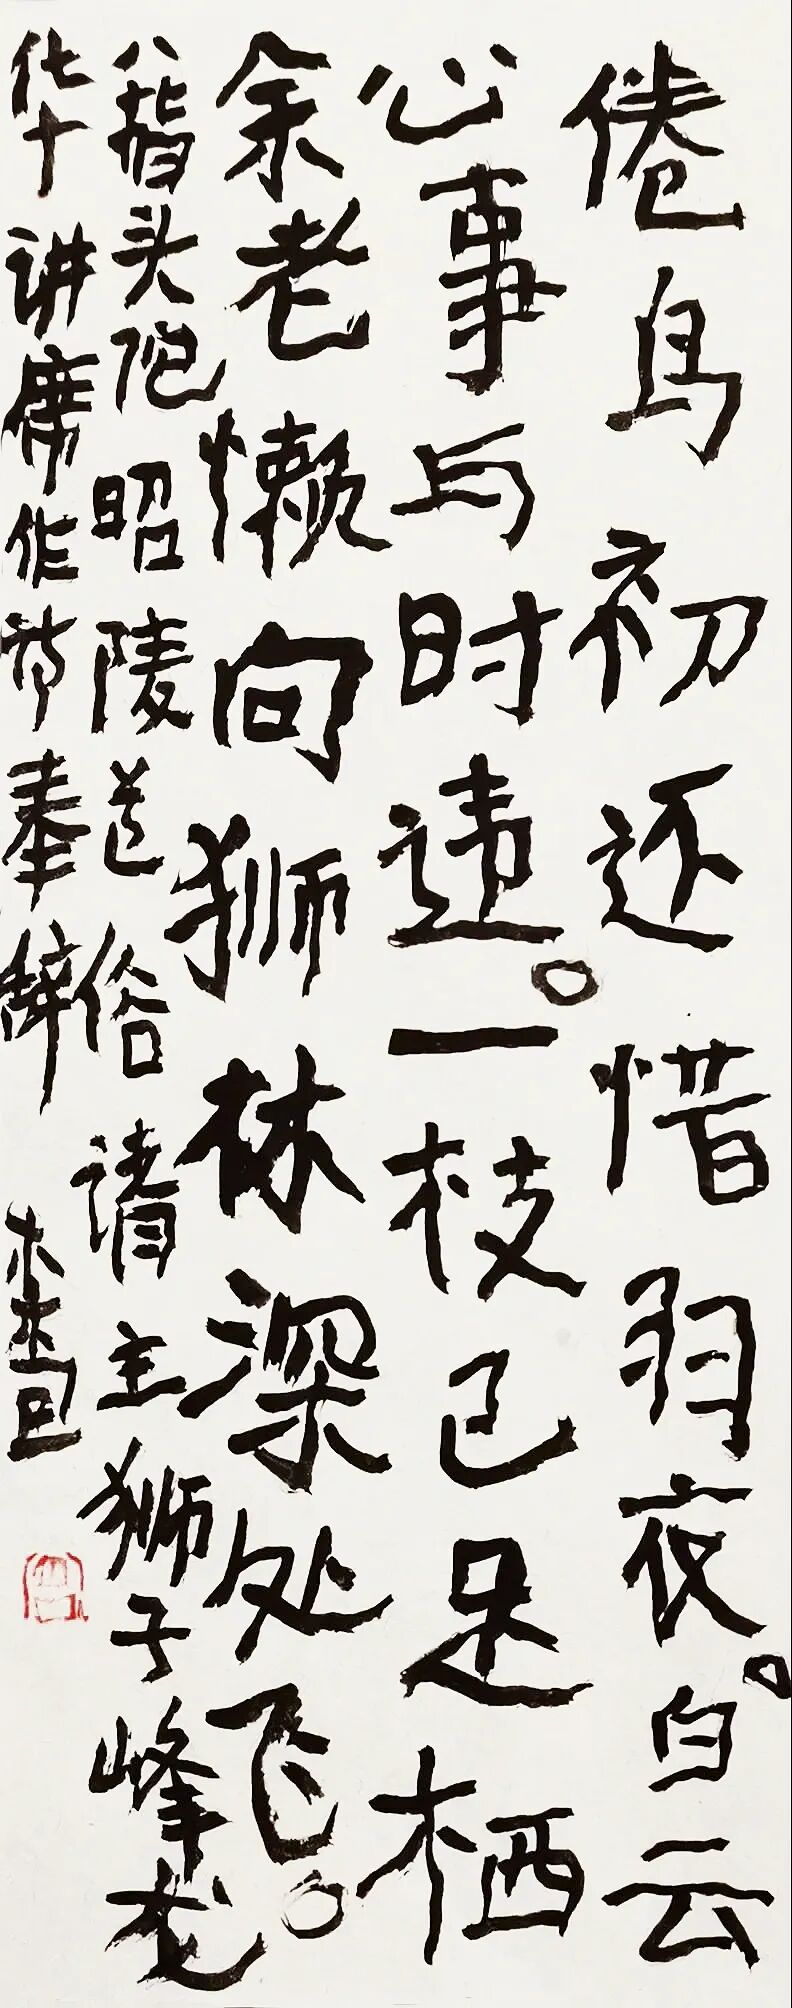 倦鸟初还惜羽衣。白云
心事与时违。一枝已足栖
余老懒向狮林深处飞。
八指头陀昭陵道俗请主狮子峰龙
华讲席作诗奉辞 李